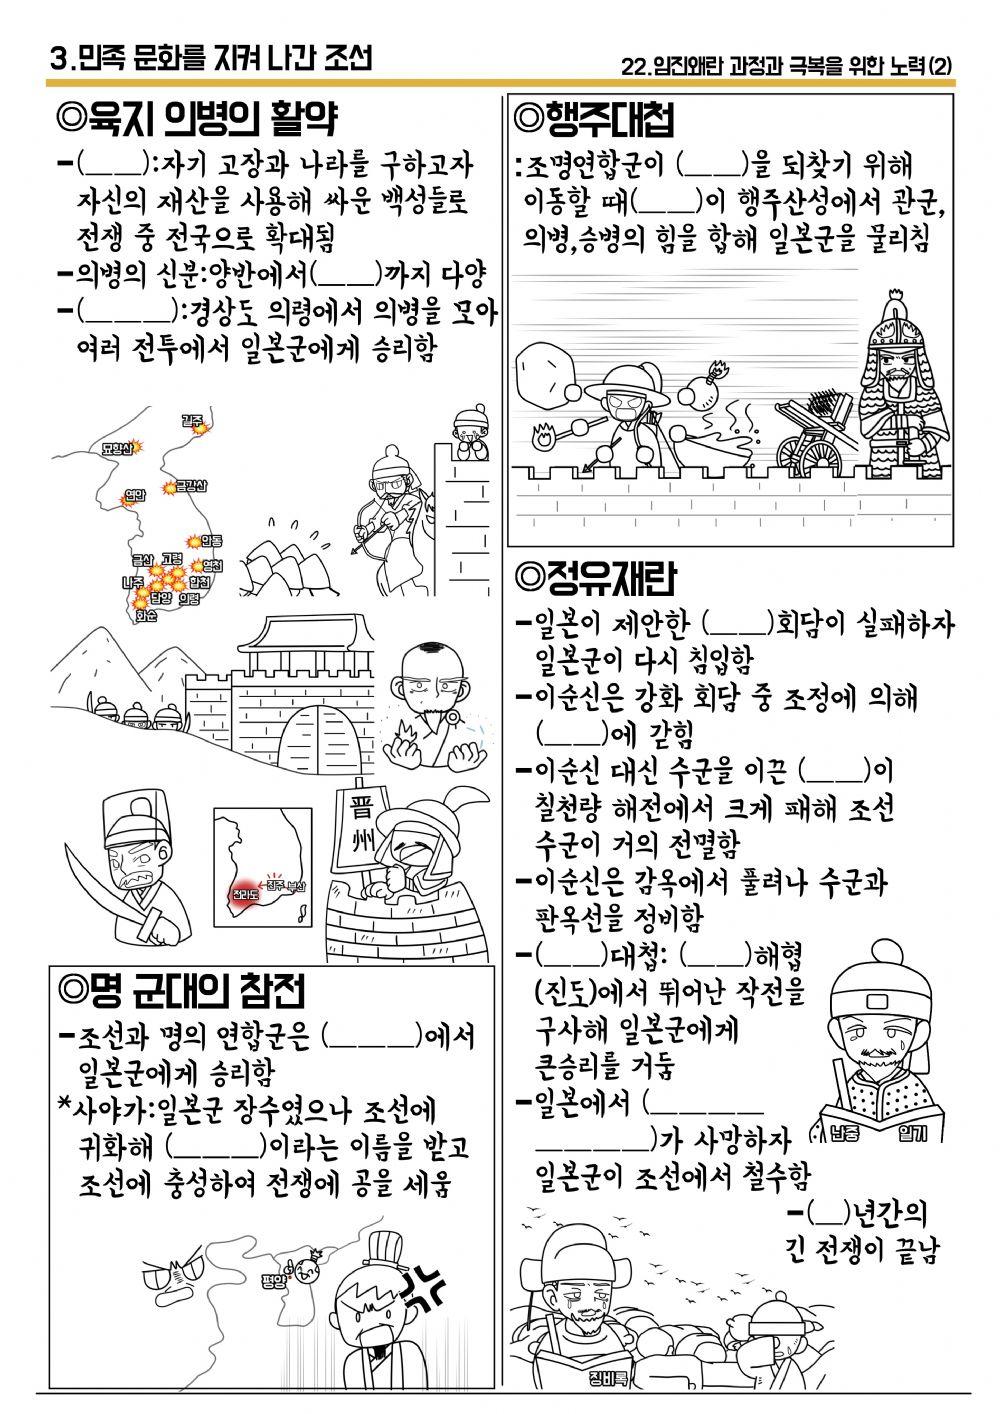 3.민족 문화를 지켜 나간 조선
22.임진왜란 과정과 극복을 위한 노력(2)
◎육지 의병의 활약
-(____):자기 고장과 나라를 구하고자
자신의 재산을 사용해 싸운 백성들로
전쟁 중 전국으로 확대됨
-의병의 신분:양반에서(____)까지 다양
-(______):경상도 의령에서 의병을 모아
여러 전투에서 일본군에게 승리함
길주
묘향산
연안
금강산
안동
금산
고령
영천
나주
합천
담양
의령
화순
晋
州
전라도
진주
부산
◎명 군대의 참전
-조선과 명의 연합군은 (______)에서
일본군에게 승리함
*사야가:일본군 장수였으나 조선에
귀화해 (______)이라는 이름을 받고
조선에 충성하여 전쟁에 공을 세움
평양
◎행주대첩
:조명연합군이 (____)을 되찾기 위해
이동할 때(____)이 행주산성에서 관군,
의병,승병의 힘을 합해 일본군을 물리침
◎정유재란
-일본이 제안한 (____)회담이 실패하자
일본군이 다시 침입함
-이순신은 강화 회담 중 조정에 의해
(____)에 갇힘
-이순신 대신 수군을 이끈 (____)이
칠천량 해전에서 크게 패해 조선
수군이 거의 전멸함
-이순신은 감옥에서 풀려나 수군과
판옥선을 정비함
-(____)대첩: (____)해협
(진도)에서 뛰어난 작전을
구사해 일본군에게
큰승리를 거둠
-일본에서 (________
________)가 사망하자
일본군이 조선에서 철수함
난중 일기
-(__)년간의
긴 전쟁이 끝남
징비록